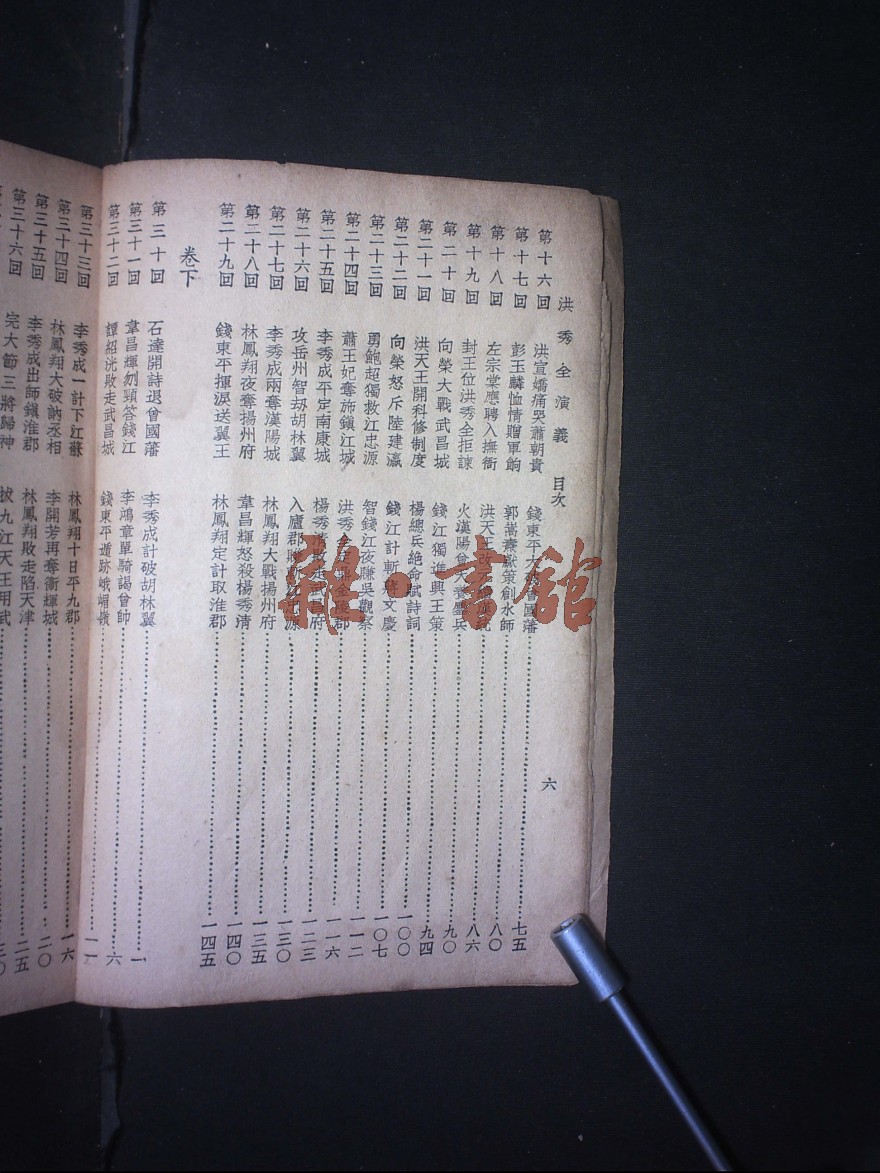 洪秀全演義 目次 六
第十六回 洪宣嬌痛哭蕭朝貴 錢東平大 國藩 七五
第十七回 彭玉麟恤情贈軍餉 郭嵩燾獻策創水師 八〇
第十八回 左宗棠應聘入撫衙 洪天王 八六
第十九回 封王位洪秀全拒諫 火漢陽 兵 九〇
第二十回 向榮大戰武昌城 錢江獨進興王策 九四
第二十一回 洪天王開科修制度 楊總兵絕命賦詩詞 一〇〇
第二十二回 向榮怒斥陸建瀛 錢江計斬 文慶 一〇七
第二十三回 勇鮑超獨救江忠源 智錢江夜賺吳觀察 一一二
第二十四回 蕭王妃奪旆鎮江城 洪秀 郡 一一六
第二十五回 李秀成平定南康城 楊秀清敗走武昌府 一二三
第二十六回 攻岳州智劫胡林翼 入廬郡 源 一三〇
第二十七回 李秀成兩奪漢陽城 林鳳翔大戰揚州府 一三五
第二十八回 林鳳翔夜奪揚州府 韋昌輝怒殺楊秀清 一四〇
第二十九回 錢東平揮淚送翼王 林鳳翔定計取淮郡 一四五
卷下
第三十回 石達開詩退曾國藩 李秀成計破胡林翼 一
第三十一回 韋昌輝刎頸答錢江 李鴻章單騎謁曾帥 六
第三十二回 譚紹洸敗走武昌城 錢東平遁跡峨嵋嶺 一一
第三十三回 李秀成一計下江蘇 林鳳翔十日平九郡 一六
第三十四回 林鳳翔大破訥丞相 李開芳再奪衝輝城 二〇
第三十五回 李秀成出師鎮淮郡 林鳳翔敗走陷天津 二五
第三十六回 完大節三將歸神 拔九江天王用武 三〇
雜·書館